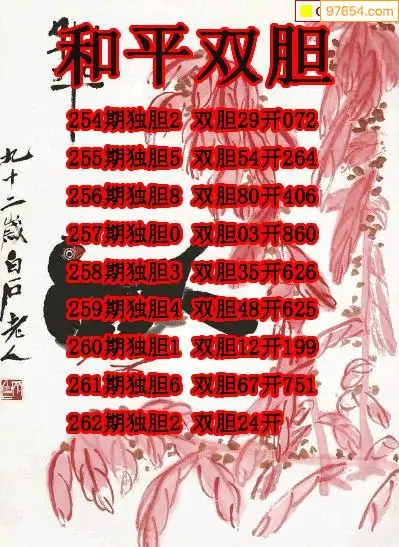 97654.com
和平双胆
254期独胆2 双胆29开072
255期独胆5 双胆54开264
256期独胆8 双胆80开406
257期独胆0 双胆03开860
258期独胆3 双胆35开626
259期独胆4 双胆48开625
260期独胆1 双胆12开199
261期独胆6 双胆67开751
262期独胆2 双胆24开
九十二岁白石老人